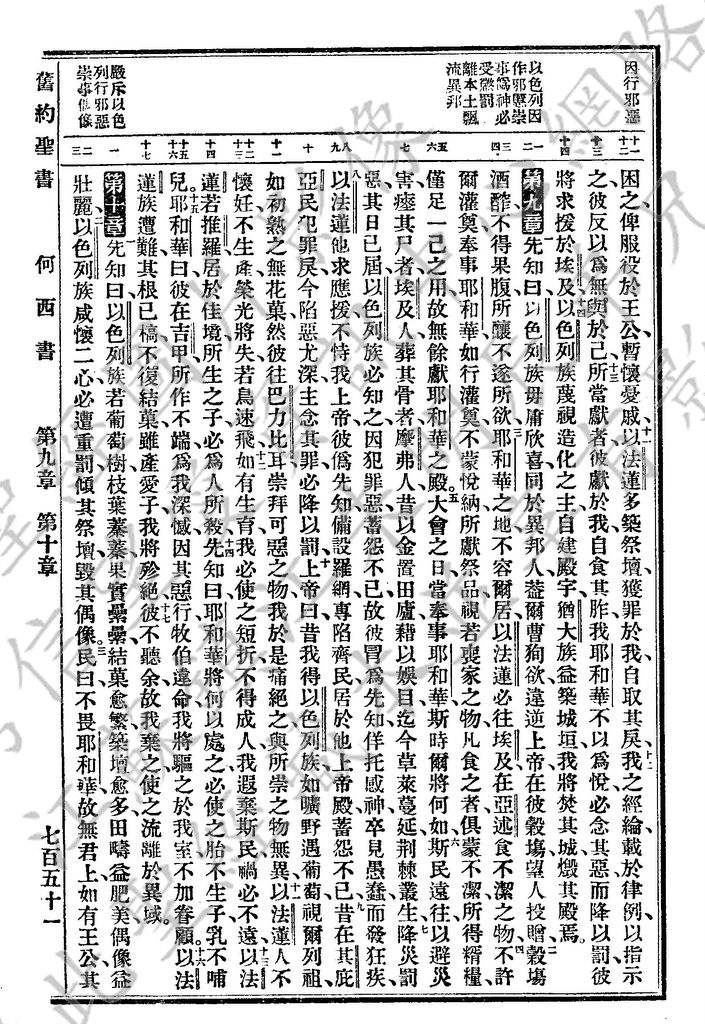 因行邪惡
以色列因
作邪慝崇
事僞神必
受懲罰
離本土飄
流異邦
嚴斥以色
列行邪惡
崇事偶像
十一
十二
十三
十四
一
二
三
四
五
六
七
八
九
十
十一
十二
十三
十四
十五
十六
十七
一
二
三
困之俾服役於王公暫懷憂戚以法蓮多築祭壇獲罪於我自取其戾我之經綸載於律例以指示
之彼反以爲無與於己所當獻者彼獻於我自食其胙我耶和華不以爲悅必念其惡而降以罰彼
將求援於埃及以色列族蔑視造化之主自建殿宇猶大族益築城垣我將焚其城燬其殿焉
第九章先知曰以色列族毋庸欣喜同於異邦人葢爾曹狥欲違逆上帝在彼穀塲望人投贈穀塲
酒醡不得果腹所釀不遂所欲耶和華之地不容爾居以法蓮必往埃及在亞述食不潔之物不許
爾灌奠奉事耶和華如行灌奠不蒙悅納所獻祭品視若喪家之物凡食之者俱蒙不潔所得糈糧
僅足一己之用故無餘獻耶和華之殿大會之日當奉事耶和華斯時爾將何如斯民遠往以避災
害瘞其尸者埃及人葬其骨者摩弗人昔以金置田廬藉以娛目迄今草萊蔓延荆棘叢生降災罰
惡其日已屆以色列族必知之因犯罪惡蓄怨不已故彼冒爲先知佯托感神卒見愚蠢而發狂疾
以法蓮他求應援不恃我上帝彼僞先知備設羅網專陷齊民居於他上帝殿蓄怨不已昔在其庇
亞民犯罪戾今陷惡尤深主念其罪必降以罰上帝曰昔我得以色列族如曠野遇葡萄視爾列祖
如初熟之無花菓然彼往巴力比耳崇拜可惡之物我於是痛絕之與所崇之物無異以法蓮人不
懷妊不生產榮光將失若鳥速飛如有生育我必使之短折不得成人我遐棄斯民禍必不遠以法
蓮若推羅居於佳境所生之子必爲人所殺先知曰耶和華將何以處之必使之胎不生子乳不哺
兒耶和華曰彼在吉甲所作不端爲我深憾因其惡行牧伯違命我將驅之於我室不加眷顧以法
蓮族遭難其根已槁不復結菓雖產愛子我將殄絕彼不聽余故我棄之使之流離於異域
第十章先知曰以色列族若葡萄樹枝葉蓁蓁果實纍纍結菓愈繁築壇愈多田疇益肥美偶像益
壯麗以色列族咸懷二心必遭重罰傾其祭壇毀其偶像民曰不畏耶和華故無君上如有王公其
舊約聖書 何西書 第九章 第十章 七百五十一